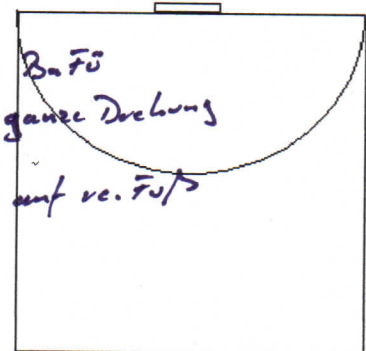 BaFü
ganze Drehung
auf re. Fuß